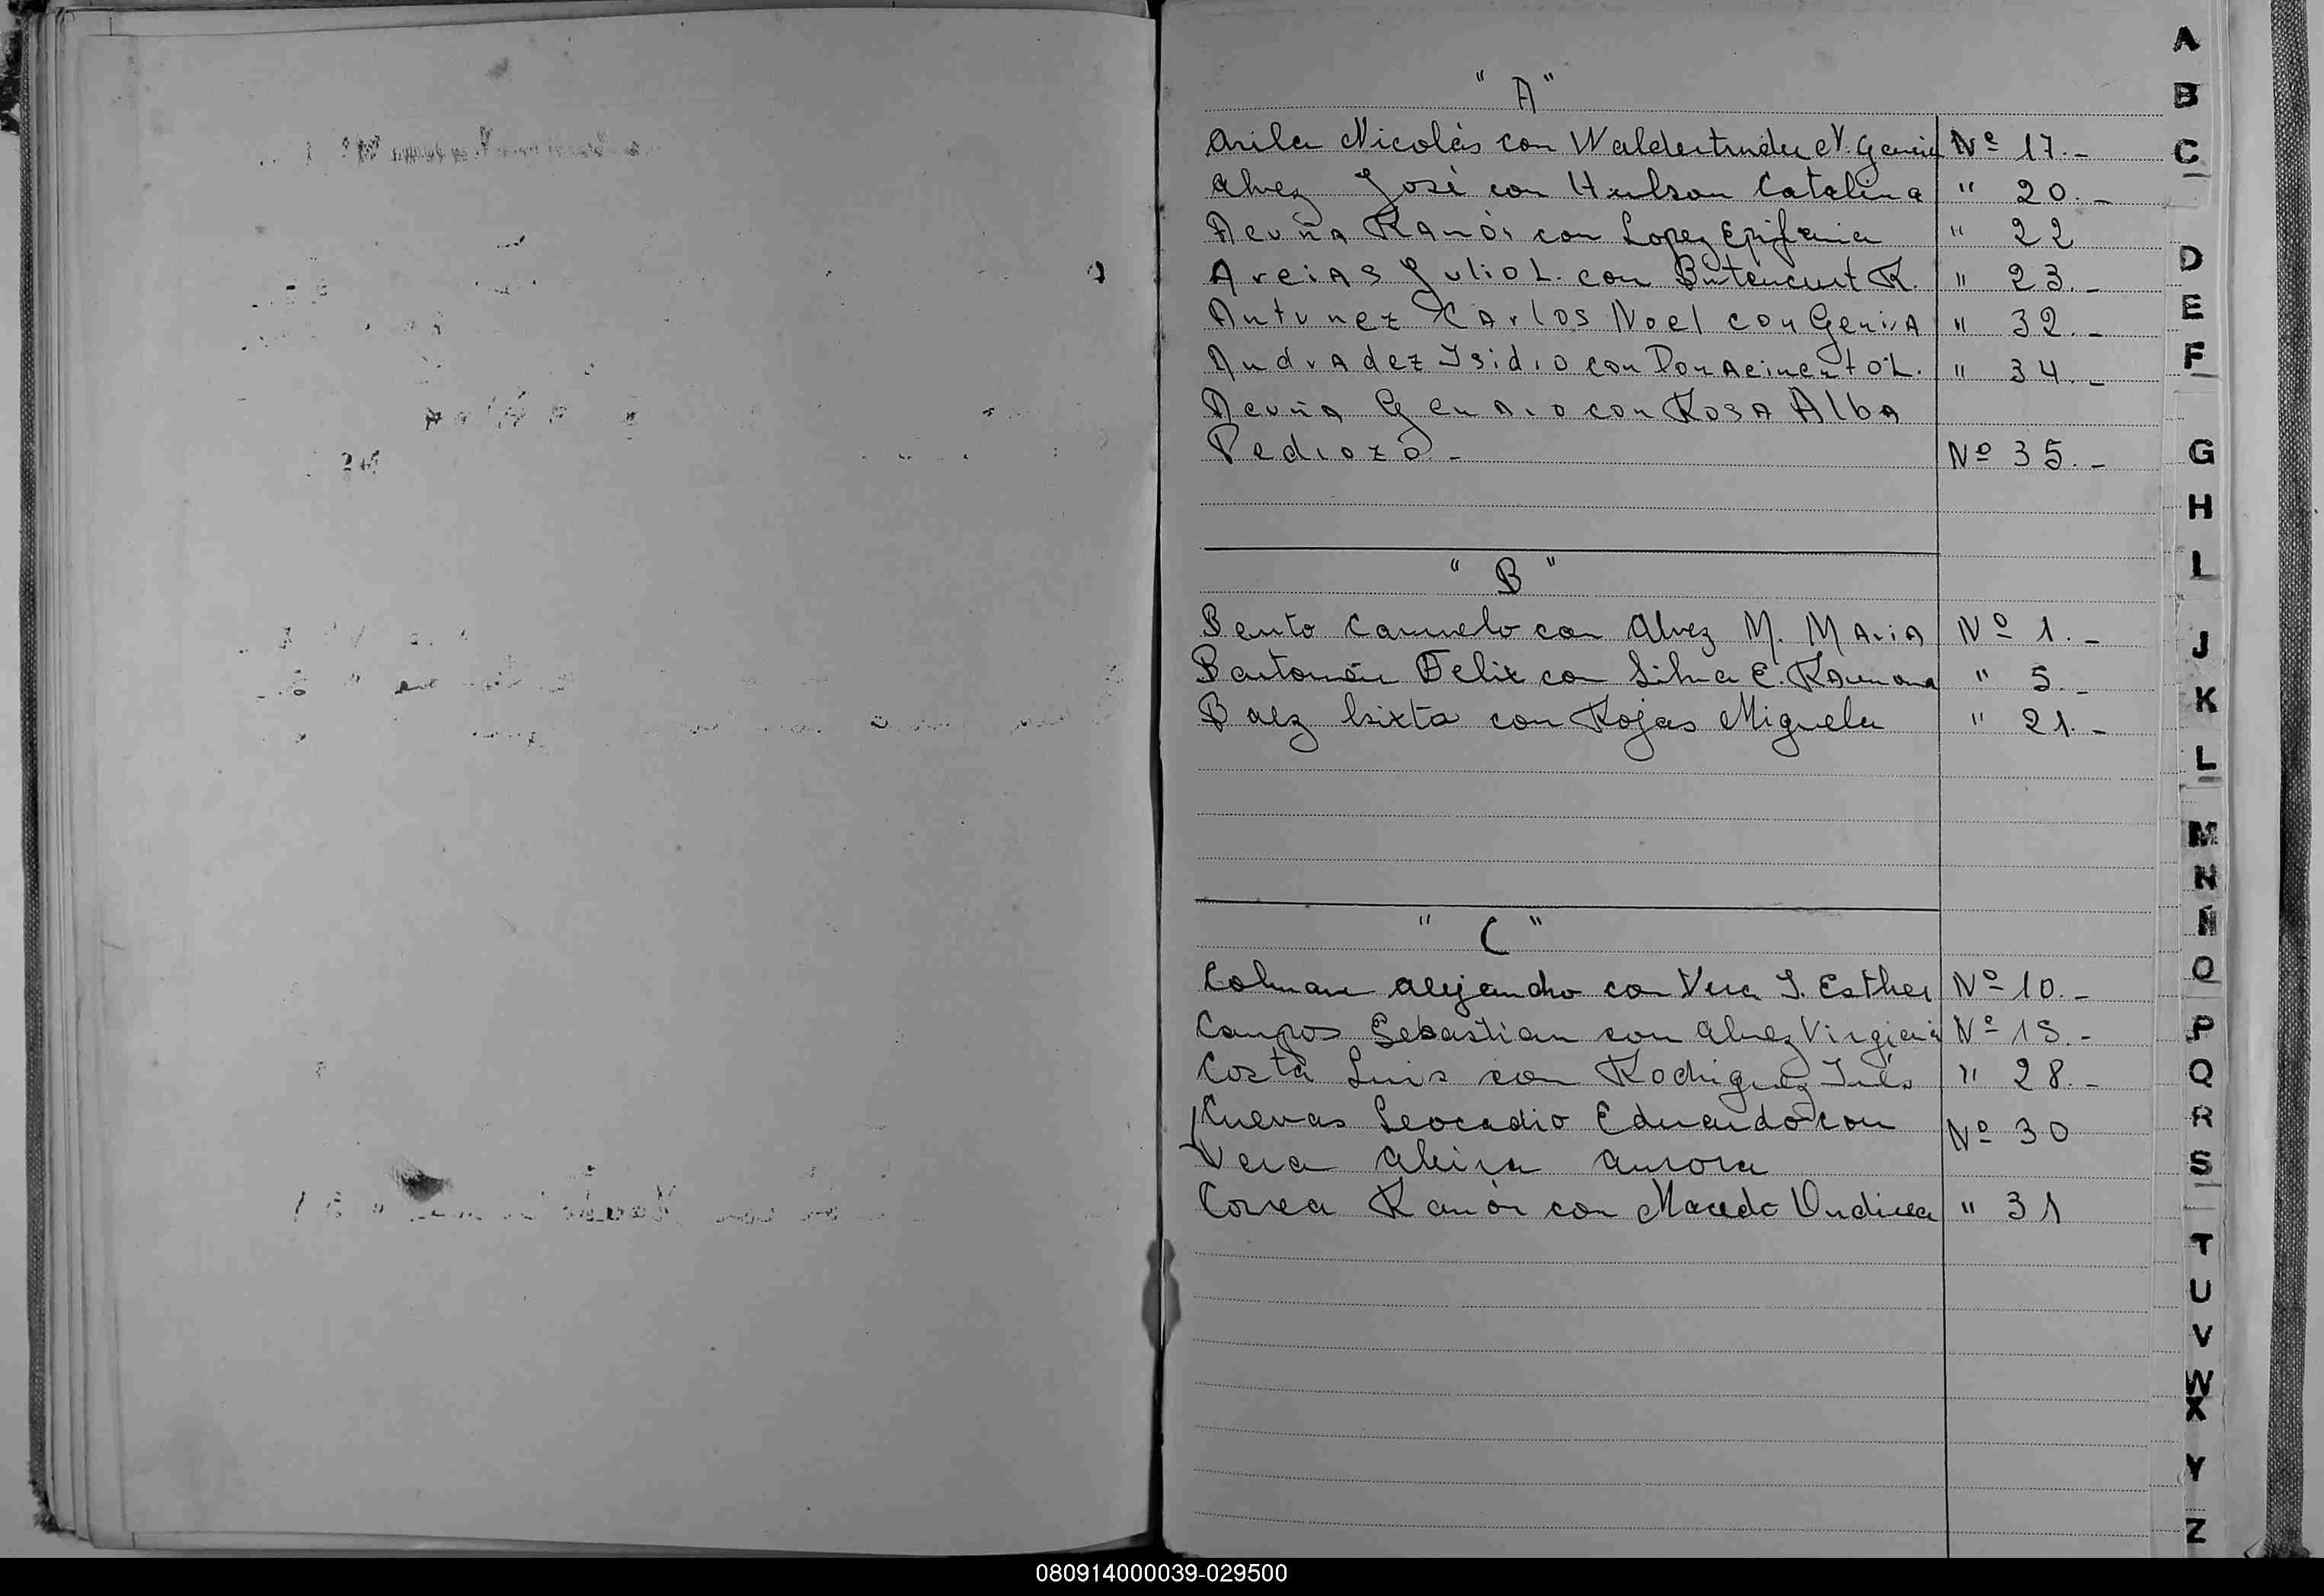 " A "
Avila Nicolás con Waldertrudes N. García Nº 17.-
Alvez José con Hulson Catalina " 20.-
Acuña Ramón con Lopez Epifania " 22
Arcias Julio L. con Butencurt R. " 23.-
Antunez Carlos Noel con " 32.-
Andradez Isidro con L. " 34.-
Acuña Genaro con Rosa Alba
Pedrozo.- Nº 35.-
" B "
Bento Carmelo con Alvez M. Maria Nº 1.-
Felix con Silva E. Ramona " 5.-
Baez Sixto con Rojas Miguela " 21.-
" C "
Colman Alejandro con Vera I. Esther Nº 10.-
Campos Sebastian con Alvez Virginia Nº 15.-
Costa Luis con Rodriguez Inés " 28.-
Cuevas Leocadio Eduardo con Nº 30
Vera Alcira Aurora
Correa Ramón con Macedo " 31
A
B
C
D
E
F
G
H
I
J
K
L
M
N
Ñ
O
P
Q
R
S
T
U
V
W
X
Y
Z
080914000039-029500